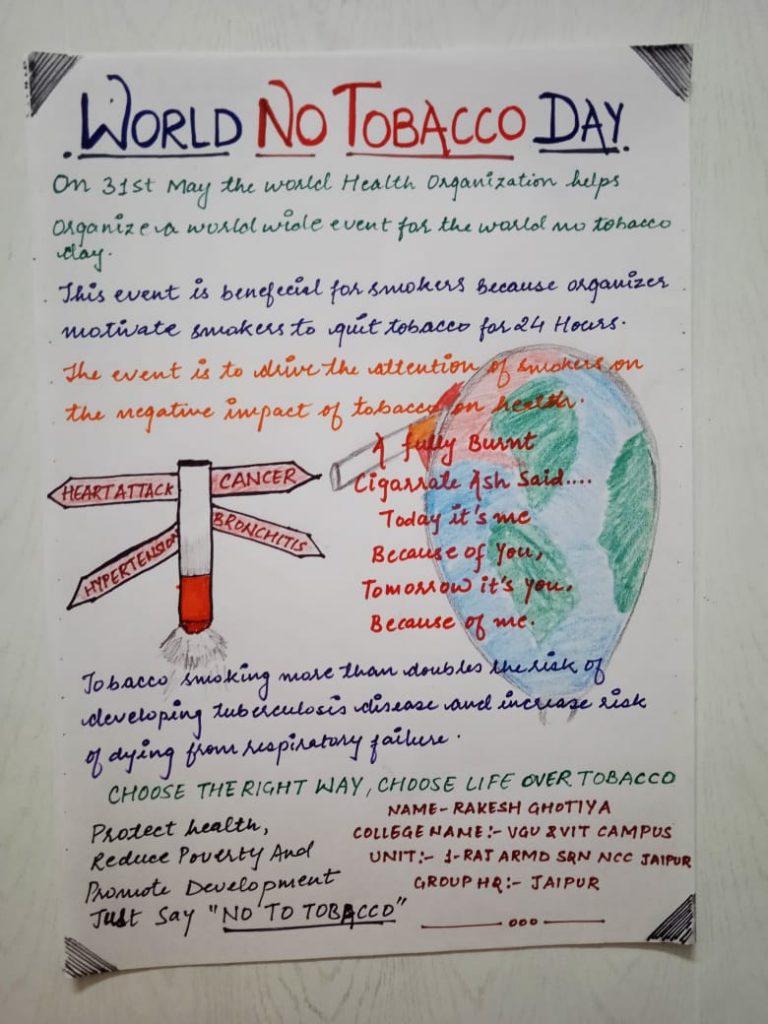 WORLD NO TOBACCO DAY.
On 31st May the world Health Organization helps
Organize a world wide event for the world no tobacco
day.
This event is benefecial for smokers because organizer
motivate smokers to quit tobacco for 24 Hours.
The event is to drive the attention of smokers on
the negative impact of tobacco on health.
HEART ATTACK
CANCER
BRONCHITIS
HYPERTENSION
A fully Burnt
Cigarrate Ash Said....
Today it's me
Because of You,
Tomorrow it's You,
Because of me.
Tobacco smoking more than doubles the risk of
developing tuberculosis disease and increase risk
of dying from respiratory failure.
CHOOSE THE RIGHT WAY, CHOOSE LIFE OVER TOBACCO
Protect health,
Reduce Poverty And
Promote Development
Just Say "NO TO TOBACCO"
NAME- RAKESH GHOTIYA
COLLEGE NAME:- VGU & VIT CAMPUS
UNIT:- 1-RAJ ARMD SQN NCC JAIPUR
GROUP HQ:- JAIPUR